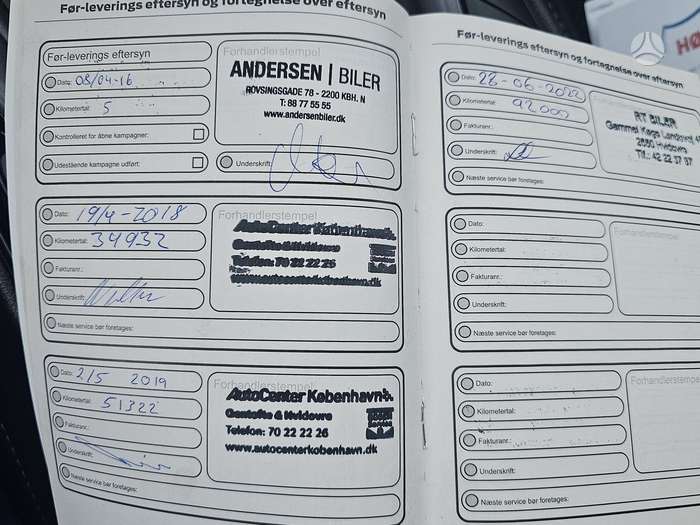 Før-leverings eftersyn og fortegnelse over eftersyn
Før-leverings eftersyn
Dato: 08/04-16
Kilometertal: 5
Kontrolleret for åbne kampagner:
Udestående kampagne udført:
Forhandlerstempel
ANDERSEN | BILER
ROVSINGSGADE 78 - 2200 KBH. N
T: 88 77 55 55
www.andersenbiler.dk
Underskrift:
Dato: 19/4-2018
Kilometertal: 34932
Fakturanr.:
Underskrift:
Næste service bør foretages:
Forhandlerstempel
AutoCenter København
Gentofte & Hvidovre
Telefon: 70 22 22 26
www.autocenterkobenhavn.dk
Dato: 2/5 2019
Kilometertal: 51322
Fakturanr.:
Underskrift:
Næste service bør foretages:
Forhandlerstempel
AutoCenter København
Gentofte & Hvidovre
Telefon: 70 22 22 26
www.autocenterkobenhavn.dk
Før-leverings eftersyn og fortegnelse over eftersyn
Dato: 28-06-2022
Kilometertal: 92000
Fakturanr.:
Underskrift:
Næste service bør foretages:
RT BILER
Gammel Køge Landevej
2650 Hvidovre
Tlf.: 42 22 37 37
Dato:
Kilometertal:
Fakturanr.:
Underskrift:
Næste service bør foretages:
Forhandlerstempel
Dato:
Kilometertal:
Fakturanr.:
Underskrift:
Næste service bør foretages:
HØ